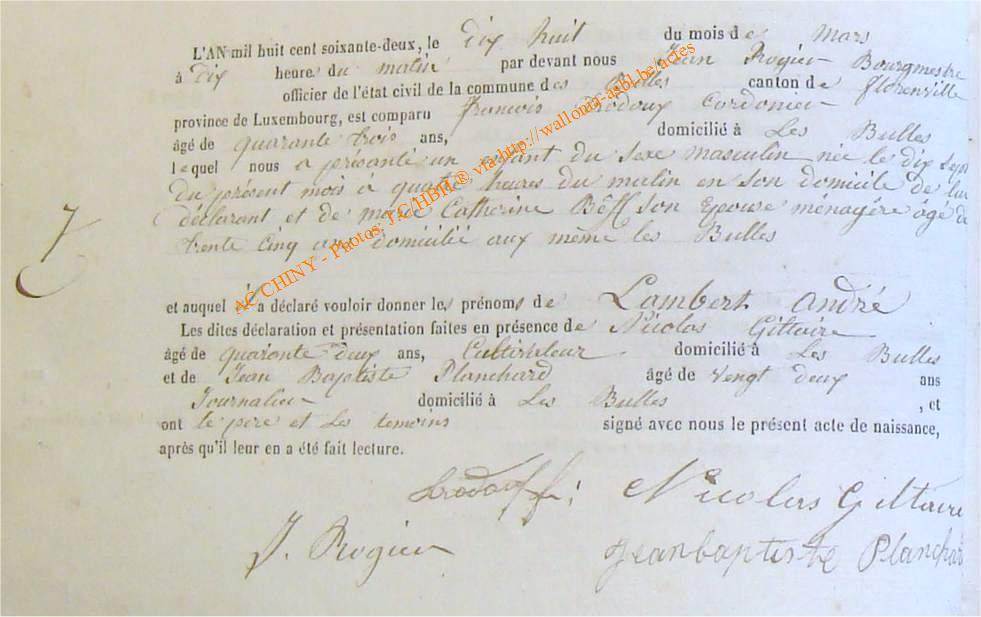 L'AN mil huit cent soixante-deux, le dix huit du mois de mars
à dix heure du matin par devant nous Jean Rogier Bourgmestre
officier de l'état civil de la commune des Bulles canton de florenville
province de Luxembourg, est comparu francois Cordonier
âgé de quarante trois ans, domicilié à Les Bulles
lequel nous a présanté un enfant du sexe masculin née le dix sept
du présent mois à quatre heures du matin en son domicile de lui
déclarant et de marie Catherine son épouse ménagére âgé de
trente cinq ans domicilié aux même les Bulles
7
et auquel il a déclaré vouloir donner les prénoms de Lambert andré
Les dites déclaration et présentation faites en présence de Nicolas Giltaire
âgé de quaronte deux ans, Cultivateur domicilié à Les Bulles
et de Jean Baptiste Planchard âgé de vengt deux ans
Journalier domicilié à Les Bulles , et
ont le pere et les temoins signé avec nous le présent acte de naissance,
après qu'il leur en a été fait lecture.
Nicolas Giltaire
J. Rogier Jeanbaptiste Planchar
AC CHINY - Photos, J.C/HBH ® via http://wallonia-asbl.be/actes